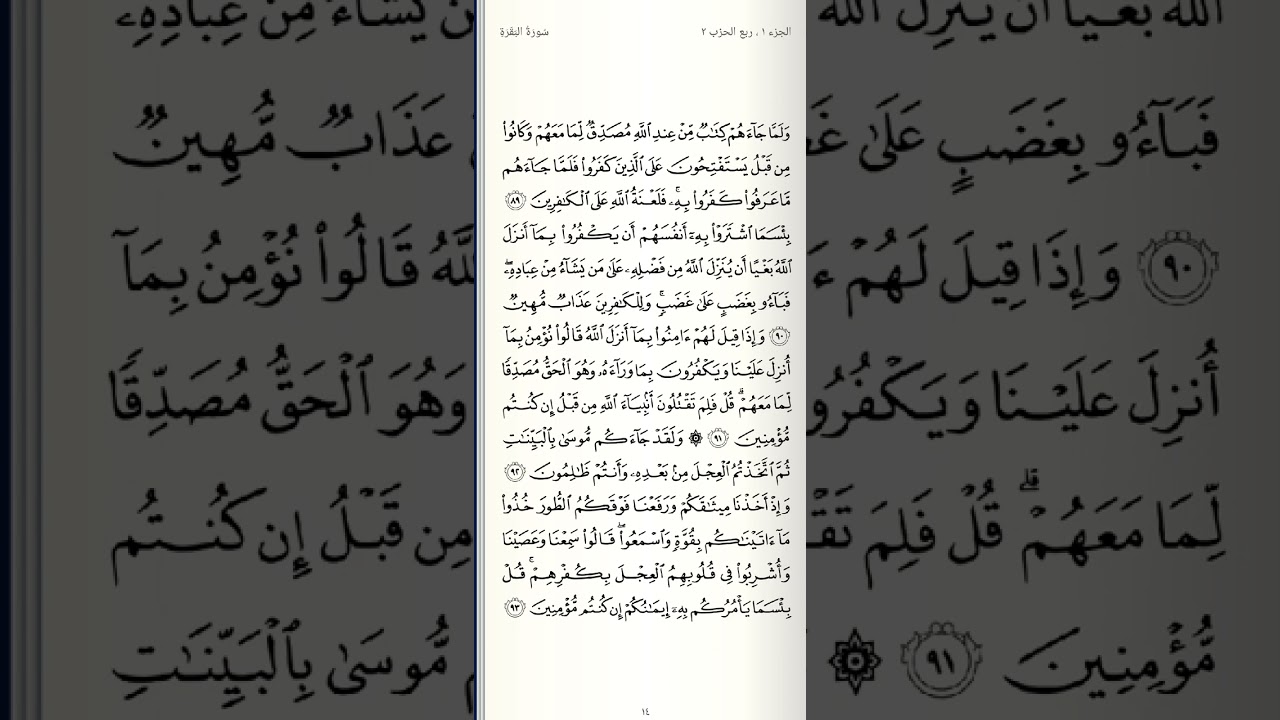 الجزء ١ ، ربع الحزب ٢
سُورَةُ البَقَرَةِ
وَلَمَّا جَآءَهُمْ كِتَٰبٌ مِّنْ عِندِ ٱللَّهِ مُصَدِّقٌ لِّمَا مَعَهُمْ وَكَانُوا۟
مِن قَبْلُ يَسْتَفْتِحُونَ عَلَى ٱلَّذِينَ كَفَرُوا۟ فَلَمَّا جَآءَهُم
مَّا عَرَفُوا۟ كَفَرُوا۟ بِهِۦ ۚ فَلَعْنَةُ ٱللَّهِ عَلَى ٱلْكَٰفِرِينَ ٨٩
بِئْسَمَا ٱشْتَرَوْا۟ بِهِۦٓ أَنفُسَهُمْ أَن يَكْفُرُوا۟ بِمَآ أَنزَلَ
ٱللَّهُ بَغْيًا أَن يُنَزِّلَ ٱللَّهُ مِن فَضْلِهِۦ عَلَىٰ مَن يَشَآءُ مِنْ عِبَادِهِۦ ۖ
فَبَآءُو بِغَضَبٍ عَلَىٰ غَضَبٍ ۚ وَلِلْكَٰفِرِينَ عَذَابٌ مُّهِينٌ
٩٠ وَإِذَا قِيلَ لَهُمْ ءَامِنُوا۟ بِمَآ أَنزَلَ ٱللَّهُ قَالُوا۟ نُؤْمِنُ بِمَآ
أُنزِلَ عَلَيْنَا وَيَكْفُرُونَ بِمَا وَرَآءَهُۥ وَهُوَ ٱلْحَقُّ مُصَدِّقًا
لِّمَا مَعَهُمْ ۗ قُلْ فَلِمَ تَقْتُلُونَ أَنۢبِيَآءَ ٱللَّهِ مِن قَبْلُ إِن كُنتُم
مُّؤْمِنِينَ ٩١ ۞ وَلَقَدْ جَآءَكُم مُّوسَىٰ بِٱلْبَيِّنَٰتِ
ثُمَّ ٱتَّخَذْتُمُ ٱلْعِجْلَ مِنۢ بَعْدِهِۦ وَأَنتُمْ ظَٰلِمُونَ ٩٢
وَإِذْ أَخَذْنَا مِيثَٰقَكُمْ وَرَفَعْنَا فَوْقَكُمُ ٱلطُّورَ خُذُوا۟
مَآ ءَاتَيْنَٰكُم بِقُوَّةٍ وَٱسْمَعُوا۟ ۖ قَالُوا۟ سَمِعْنَا وَعَصَيْنَا
وَأُشْرِبُوا۟ فِى قُلُوبِهِمُ ٱلْعِجْلَ بِكُفْرِهِمْ ۚ قُلْ
بِئْسَمَا يَأْمُرُكُم بِهِۦٓ إِيمَٰنُكُمْ إِن كُنتُم مُّؤْمِنِينَ ٩٣
١٤